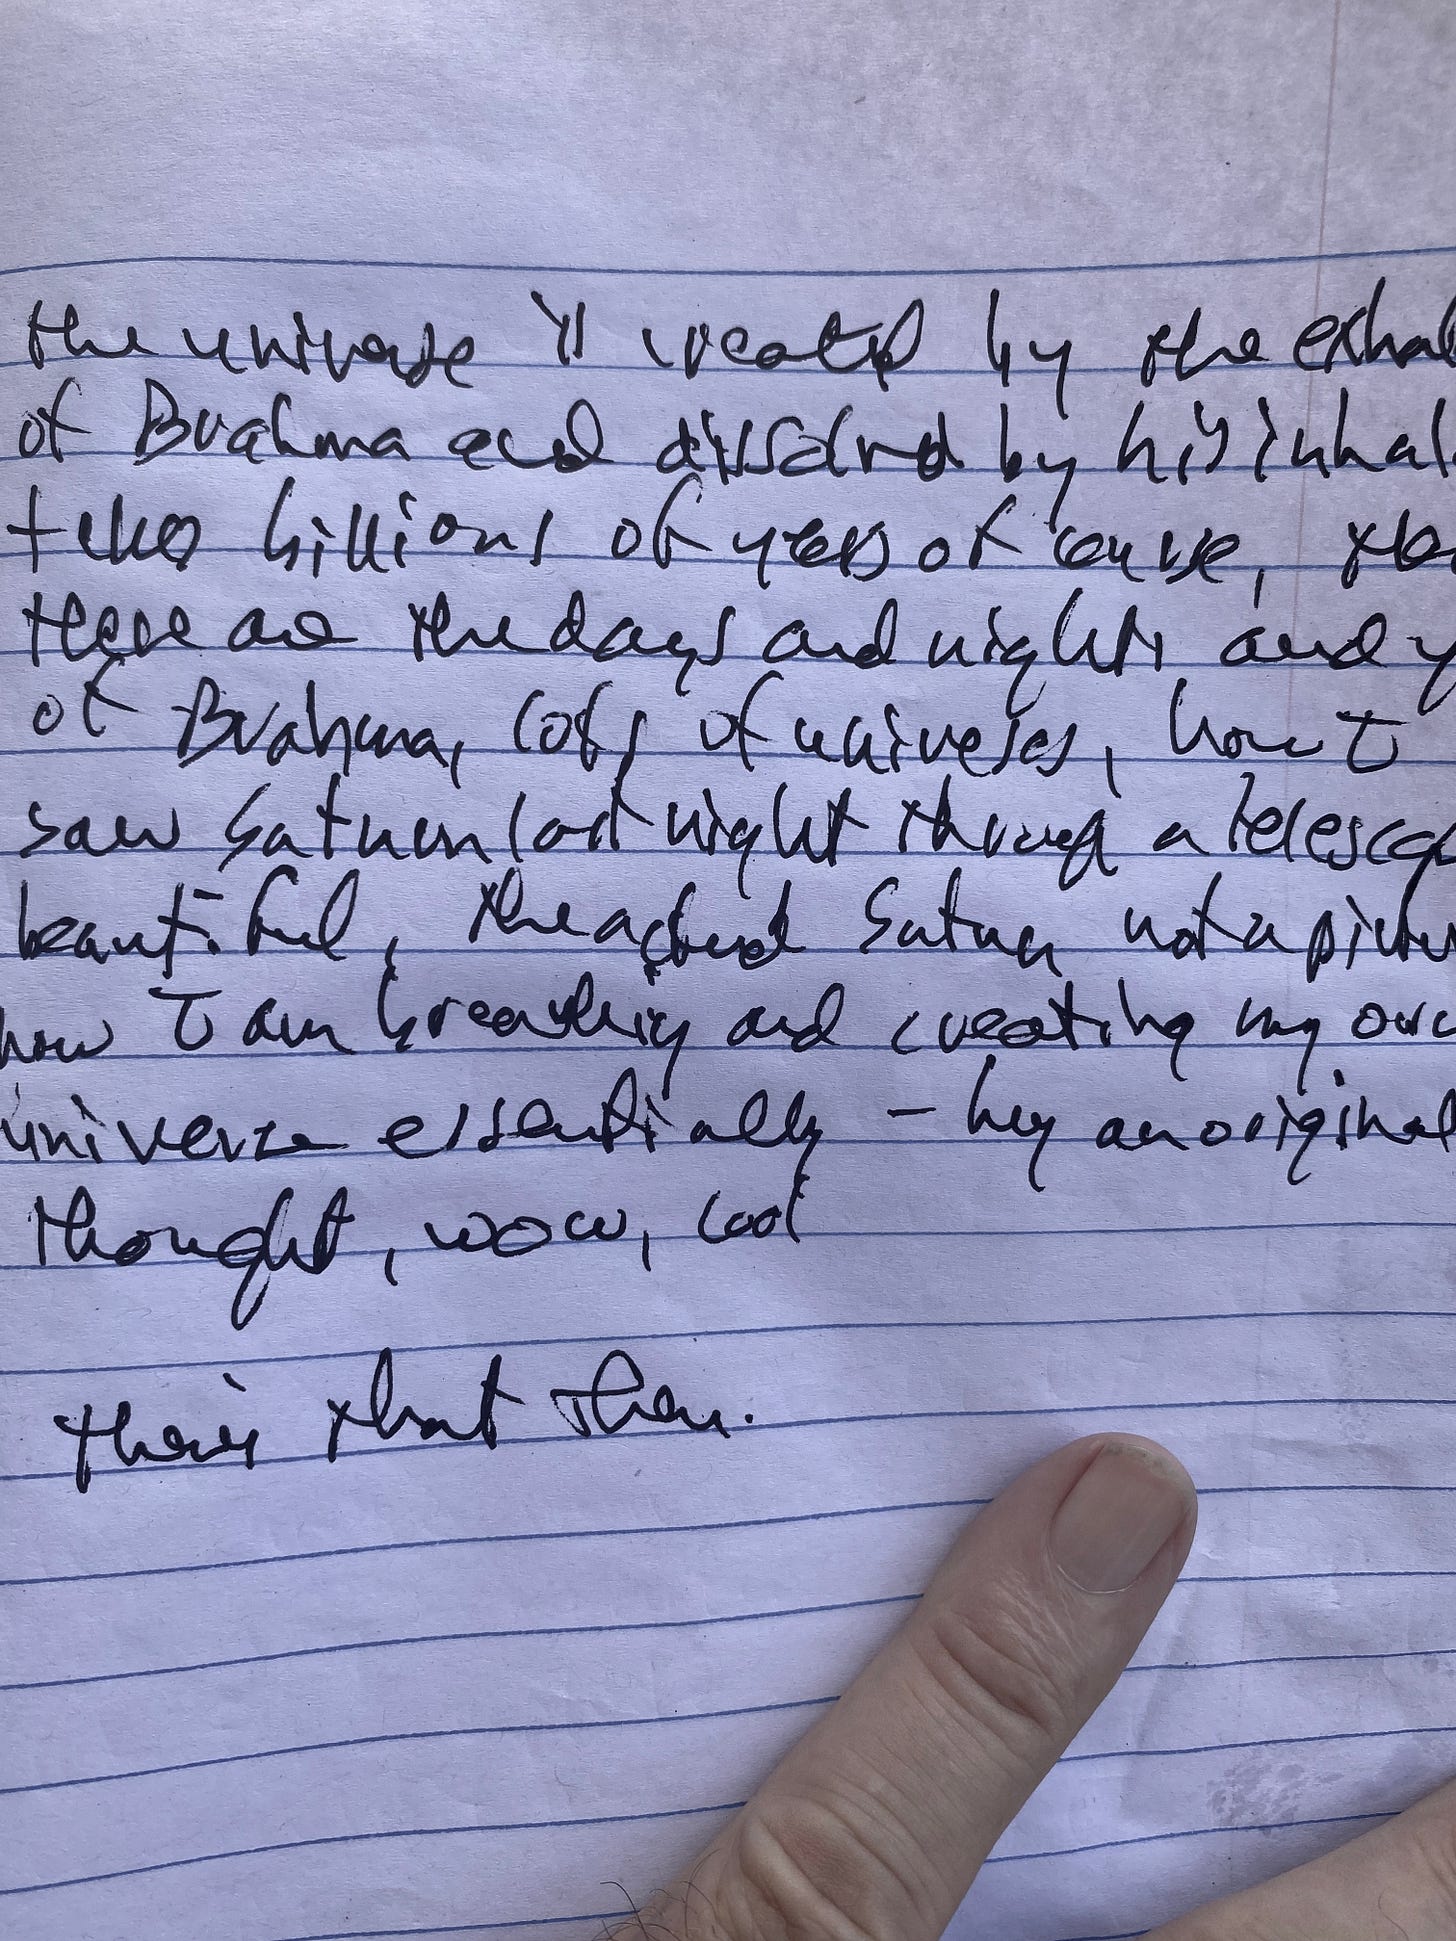 the universe is created by the exhal
of Brahma and dissolved by his inhal
takes billions of years of course, the
these are the days and nights and y
of Brahma, lots of universes, how I
saw Saturn last night through a telesco
beautiful, the actual Saturn not a pictu
how I am breathing and creating my own
universe essentially – hey an original
thought, wow, cool
there's that then.